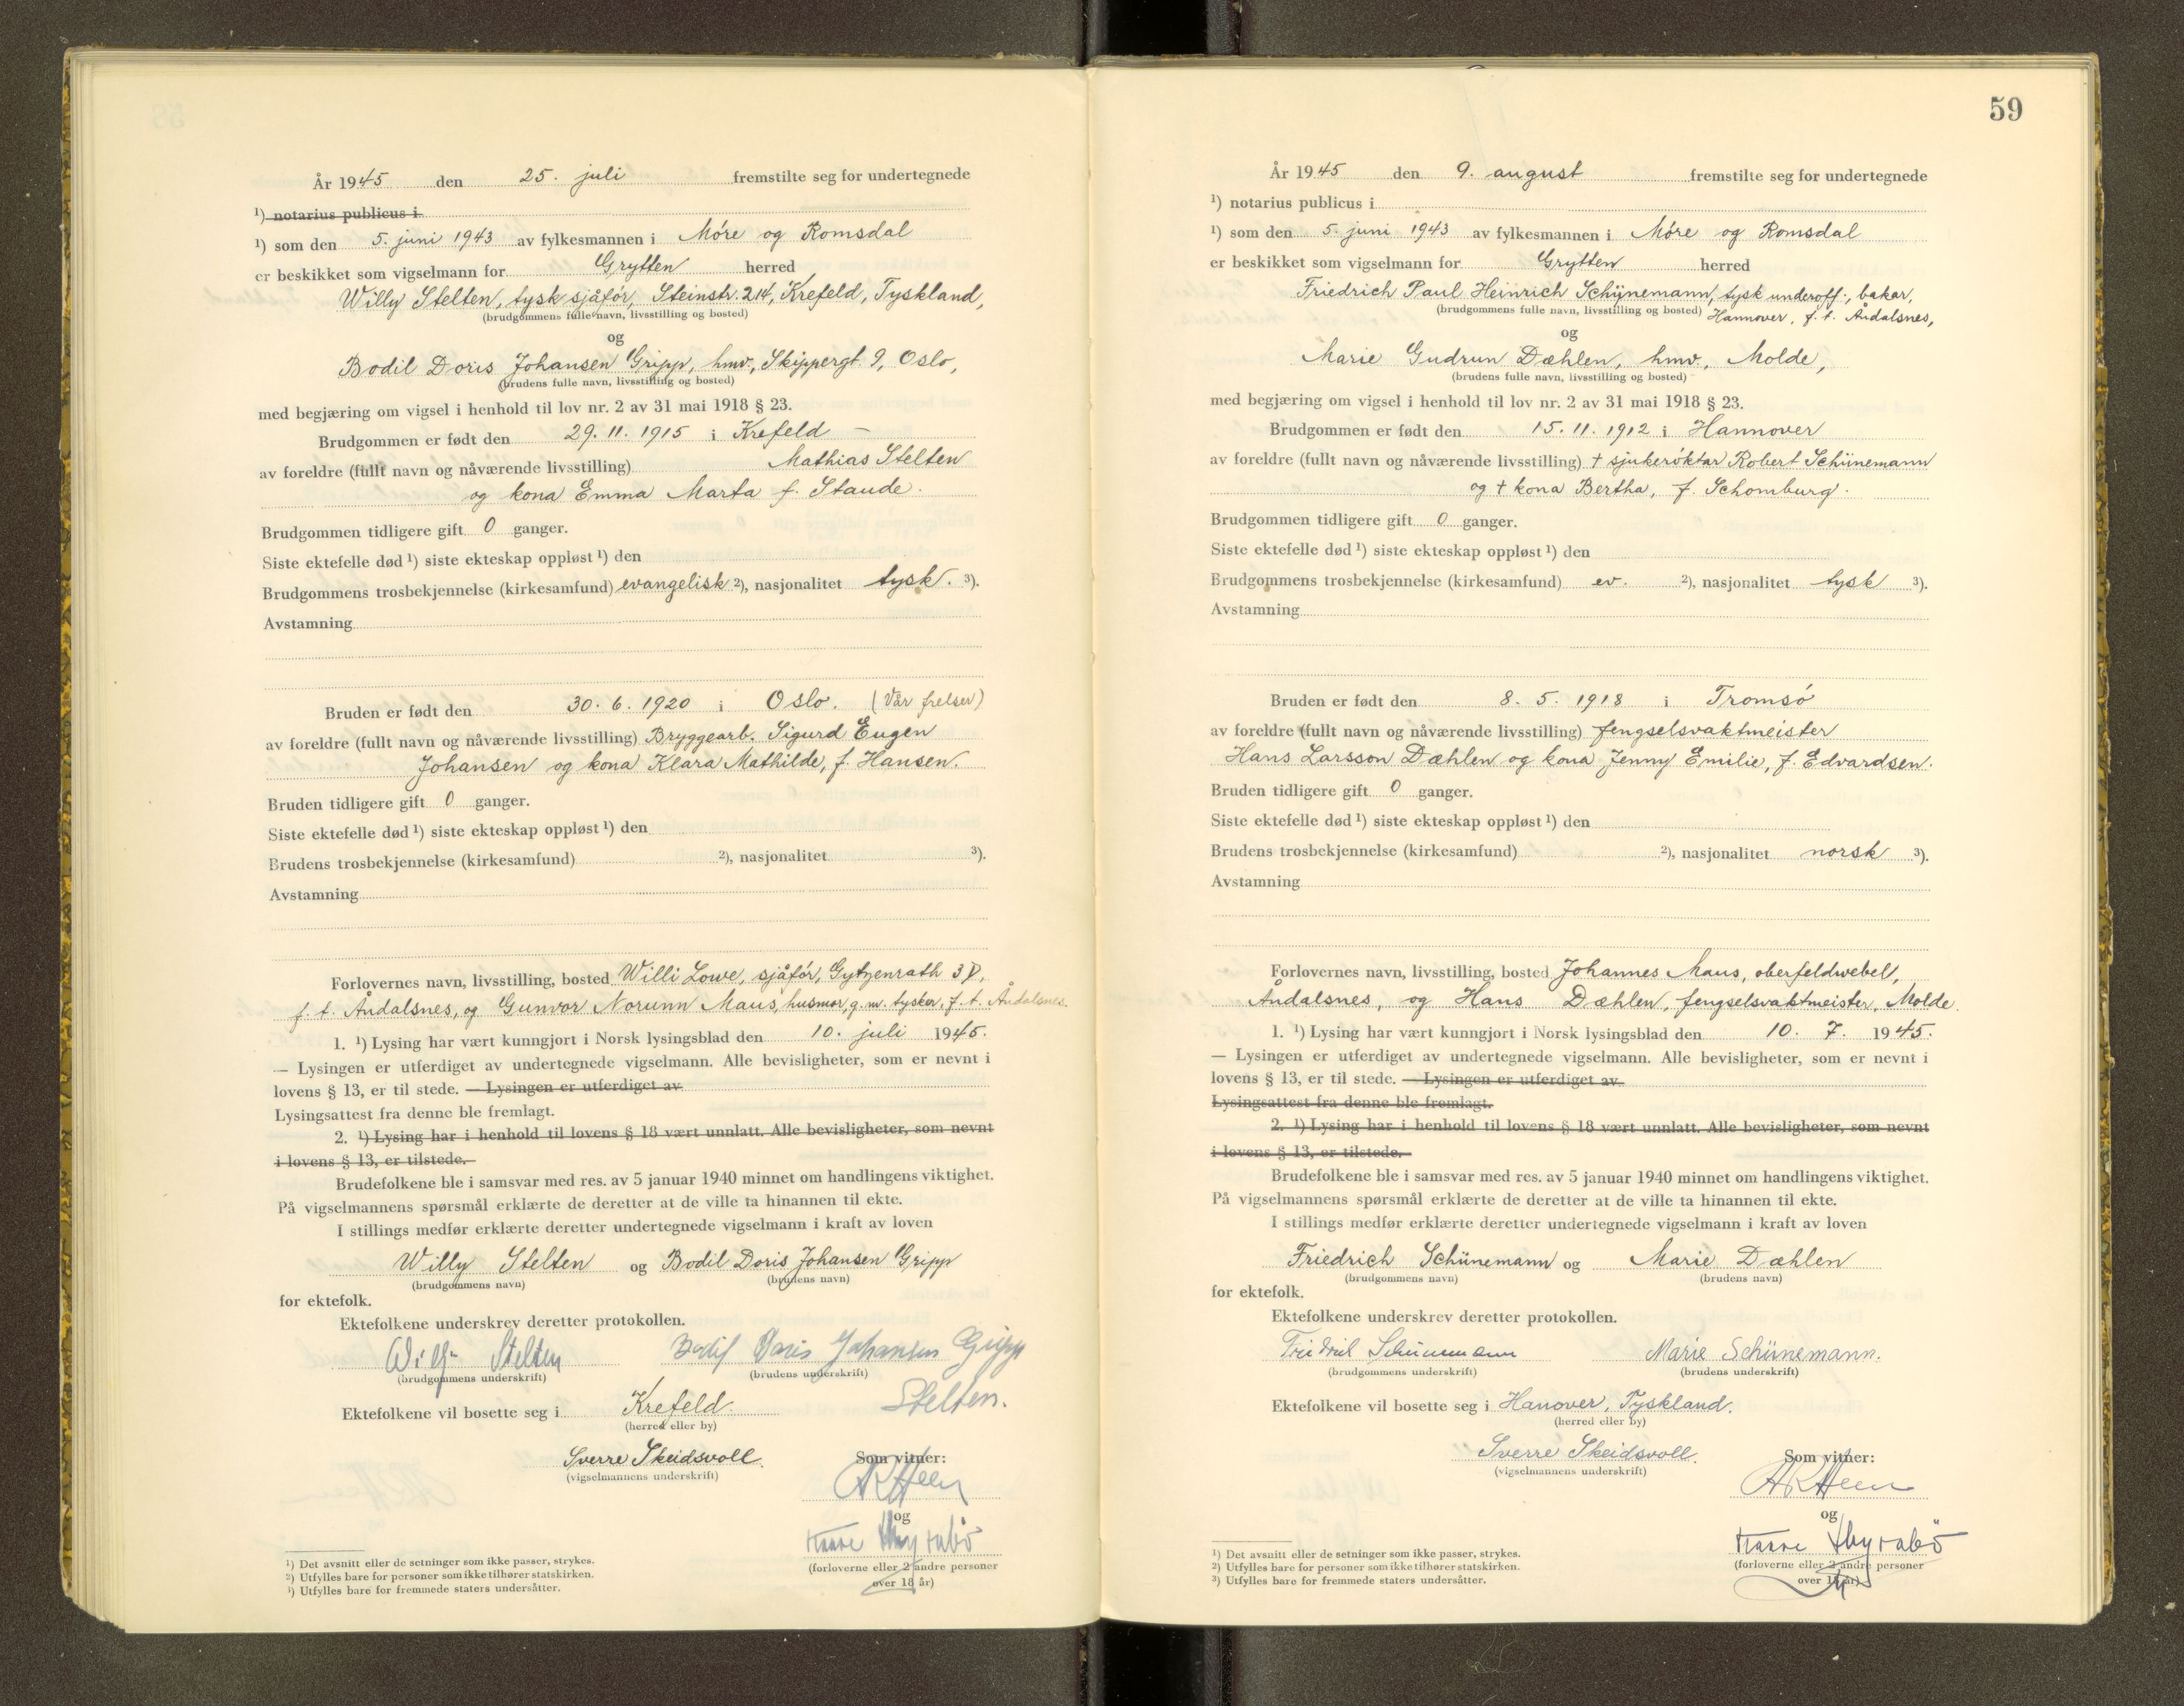 År 1945 den 25. juli fremstilte seg for undertegnede
¹) notarius publicus i
¹) som den 5. juni 1943 av fylkesmannen i Móre og Romsdal
er beskikket som vigselmann for Grytten herred
Willy Stelten, tysk sjåfór, Steinstr. 214, Krefeld, Tyskland,
(brudgommens fulle navn, livsstilling og bosted)
og
Bodil Doris Johansen Gripp, hmv., Skippergt. 9, Oslo,
(brudens fulle navn, livsstilling og bosted)
med begjæring om vigsel i henhold til lov nr. 2 av 31 mai 1918 § 23.
Brudgommen er født den 29. 11. 1915 i Krefeld –
av foreldre (fullt navn og nåværende livsstilling) Mathias Stelten
og kona Emma Marta f. Staude.
Brudgommen tidligere gift 0 ganger.
Siste ektefelle død ¹) siste ekteskap oppløst ¹) den
Brudgommens trosbekjennelse (kirkesamfund) evangelisk ²), nasjonalitet tysk. ³).
Avstamning
Bruden er født den 30. 6. 1920 i Oslo. (Vår frelser)
av foreldre (fullt navn og nåværende livsstilling) Bryggearb. Sigurd Eugen
Johansen og kona Klara Mathilde, f. Hansen.
Bruden tidligere gift 0 ganger.
Siste ektefelle død ¹) siste ekteskap oppløst ¹) den
Brudens trosbekjennelse (kirkesamfund) ²), nasjonalitet ³).
Avstamning
Forlovernes navn, livsstilling, bosted Willi Lowe, sjåfór, Gytzenrath
f. t. Åndalsnes, og Gunvor Norunn Maus, husmor, g. m. tysker, f. t. Åndalsnes.
1. ¹) Lysing har vært kunngjort i Norsk lysingsblad den 10. juli 1945.
— Lysingen er utferdiget av undertegnede vigselmann. Alle bevisligheter, som er nevnt i
lovens § 13, er til stede. — Lysingen er utferdiget av
Lysingsattest fra denne ble fremlagt.
2. ¹) Lysing har i henhold til lovens § 18 vært unnlatt. Alle bevisligheter, som nevnt
i lovens § 13, er tilstede.
Brudefolkene ble i samsvar med res. av 5 januar 1940 minnet om handlingens viktighet.
På vigselmannens spørsmål erklærte de deretter at de ville ta hinannen til ekte.
I stillings medfør erklærte deretter undertegnede vigselmann i kraft av loven
Willy Stelten og Bodil Doris Johansen Gripp
(brudgommens navn) (brudens navn)
for ektefolk.
Ektefolkene underskrev deretter protokollen.
Willy Stelten Bodil Doris Johansen Gripp
(brudgommens underskrift) (brudens underskrift)
Stelten.
Ektefolkene vil bosette seg i Krefeld.
(herred eller by)
Sverre Skeidsvoll. Som vitner:
(vigselmannens underskrift)
AKHeen
og
Kaare
(forloverne eller 2 andre personer
over 18 år)
¹) Det avsnitt eller de setninger som ikke passer, strykes.
²) Utfylles bare for personer som ikke tilhører statskirken.
¹) Utfylles bare for fremmede staters undersåtter.
59
År 1945 den 9. august fremstilte seg for undertegnede
¹) notarius publicus i
¹) som den 5. juni 1943 av fylkesmannen i Móre og Romsdal
er beskikket som vigselmann for Grytten herred
Friedrich Paul Heinrich Schünemann, tysk underoff., bakar,
(brudgommens fulle navn, livsstilling og bosted) Hannover, f. t. Åndalsnes,
og
Marie Gudrun Dæhlen, hmv., Molde,
(brudens fulle navn, livsstilling og bosted)
med begjæring om vigsel i henhold til lov nr. 2 av 31 mai 1918 § 23.
Brudgommen er født den 15. 11. 1912 i Hannover
av foreldre (fullt navn og nåværende livsstilling) † sjukeróktar Robert Schünemann
og † kona Bertha, f. Schomburg.
Brudgommen tidligere gift 0 ganger.
Siste ektefelle død ¹) siste ekteskap oppløst ¹) den
Brudgommens trosbekjennelse (kirkesamfund) ev. ²), nasjonalitet tysk ³).
Avstamning
Bruden er født den 8. 5. 1918 i Tromsó
av foreldre (fullt navn og nåværende livsstilling) fengselsvaktmeister
Hans Larsson Dæhlen og kona Jenny Emilie, f. Edvardsen.
Bruden tidligere gift 0 ganger.
Siste ektefelle død ¹) siste ekteskap oppløst ¹) den
Brudens trosbekjennelse (kirkesamfund) ²), nasjonalitet norsk ³).
Avstamning
Forlovernes navn, livsstilling, bosted Johannes Maus, oberfeldwebel,
Åndalsnes, og Hans Dæhlen, fengselsvaktmeister, Molde.
1. ¹) Lysing har vært kunngjort i Norsk lysingsblad den 10. 7. 1945.
— Lysingen er utferdiget av undertegnede vigselmann. Alle bevisligheter, som er nevnt i
lovens § 13, er til stede. — Lysingen er utferdiget av
Lysingsattest fra denne ble fremlagt.
2. ¹) Lysing har i henhold til lovens § 18 vært unnlatt. Alle bevisligheter, som nevnt
i lovens § 13, er tilstede.
Brudefolkene ble i samsvar med res. av 5 januar 1940 minnet om handlingens viktighet.
På vigselmannens spørsmål erklærte de deretter at de ville ta hinannen til ekte.
I stillings medfør erklærte deretter undertegnede vigselmann i kraft av loven
Friedrich Schünemann og Marie Dæhlen
(brudgommens navn) (brudens navn)
for ektefolk.
Ektefolkene underskrev deretter protokollen.
Schünemann Marie Schünemann.
(brudgommens underskrift) (brudens underskrift)
Ektefolkene vil bosette seg i Hanover, Tyskland.
(herred eller by)
Sverre Skeidsvoll. Som vitner:
(vigselmannens underskrift)
AKHeen
og
Kaare
(forloverne eller 2 andre personer
over 18 år)
¹) Det avsnitt eller de setninger som ikke passer, strykes.
²) Utfylles bare for personer som ikke tilhører statskirken.
³) Utfylles bare for fremmede staters undersåtter.